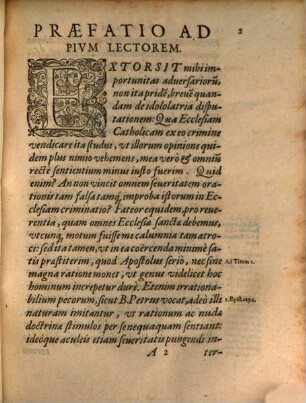 PRÆFATIO AD
2
PIVM LECTOREM.
EXTORSIT mihi im-
portunitas adversariorũ,
non ita pridē, brevē quan-
dam de idololatria dispu-
tationem: Qua Ecclesiam
Catholicam ex eo crimine
vendicare ita studui, ut illorum opinione qui-
dem plus nimio vehemens, mea verò & omniũ
rectè sentientium minus iusto fuerim. Quid
enim? An non vincit omnem severitatem ora-
tionis tam falsa tamq́, improba istorum in Ec-
clesiam criminatio? Fateor equidem, pro reve-
rentia, quam omnes Ecclesiæ sanctæ debemus,
utcunq́, motum fuisse me calumnia tam atro-
ci: sed ita tamen, ut in ea coërcenda minimè sa-
tis præstiterim, quod Apostolus serio, nec sine
magna ratione monet, ut genus videlicet hoc
Ad Titum 1.
hominum increpetur durè. Etenim irrationa-
bilium pecorum, sicut B. Petrus vocat, adeò illi
2. Epist. cap. 2.
naturam imitantur, ut rationum ac nudæ
doctrinæ stimulos per se nequaquam sentiant:
ideòque aculeis etiam severitatis pungendi in-
A 2
ter-